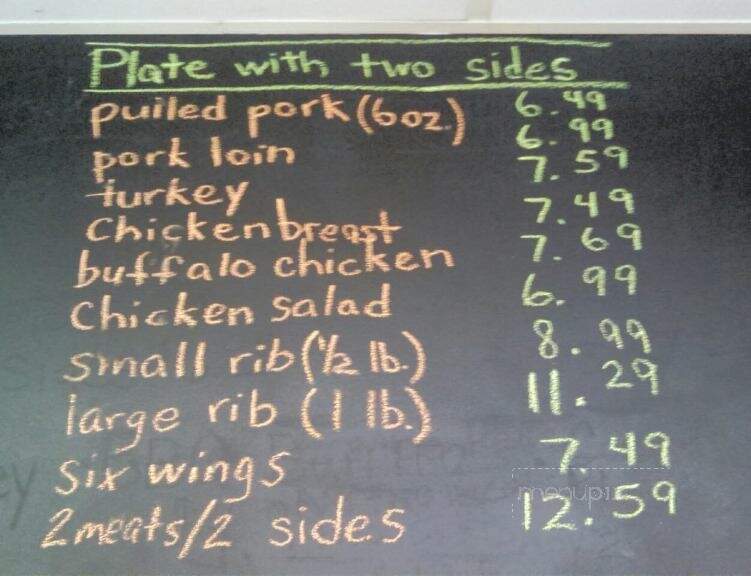 Plate with two sides
pulled pork (6oz.) 6.49
pork loin 6.99
turkey 7.59
Chicken breast 7.49
buffalo chicken 7.69
Chicken Salad 6.99
small rib (1/2 lb.) 8.99
large rib (1 lb.) 11.29
six wings 7.49
2 meats/2 sides 12.59